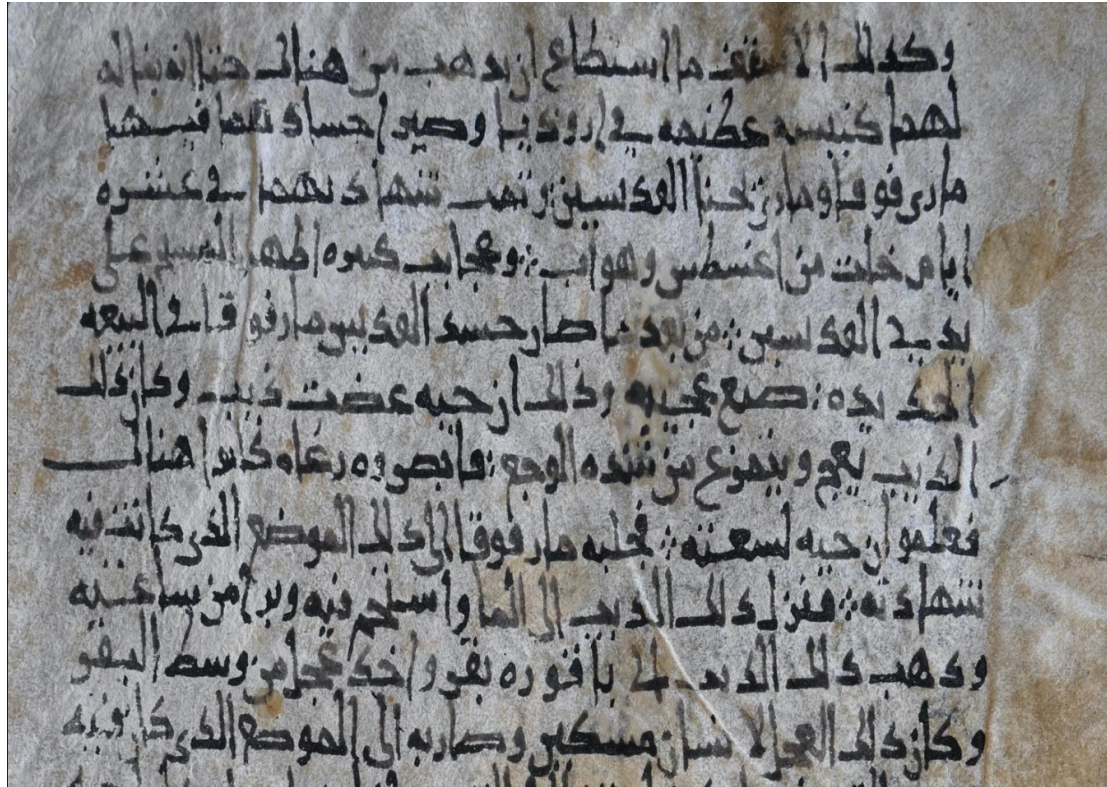 وكدلك الاسقف ما استطاع ان يدهب من هناك حتا انه بنا له
لهما كنيسه عظيمه في اروندیا وصير اجسادهما فيها
ماري فوقا ومار يحنا القديسين وتمت شهادتهما في عشره
ايام خلت من اغسطس وهو اب ؛ وعجايب كثيره اظهر المسيح على
يدي القديسين ؛ من بعد ما صار جسد القديس مار فوقا في البيعه
الجديده ؛ صنع عجيبه وذلك ان حيه عضت ذيب وكان ذلك
الذيب يعج ويتمرغ من شده الوجع ؛ فابصروه رعاه كانوا هناك
فعلموا ان حيه لسعته ؛ فجلبه مار فوقا الى ذلك الموضع الذي كانت فيه
شهادته ؛ فنزل ذلك الديب الى الما واستحم فيه وبرا من ساعتيه
ودهب ذلك الديب الى باقوره بقر واخد عجل من وسط البقر
وكان ذلك العجل لانسان مسكين وصار به الى الموضع الدي كان فيه